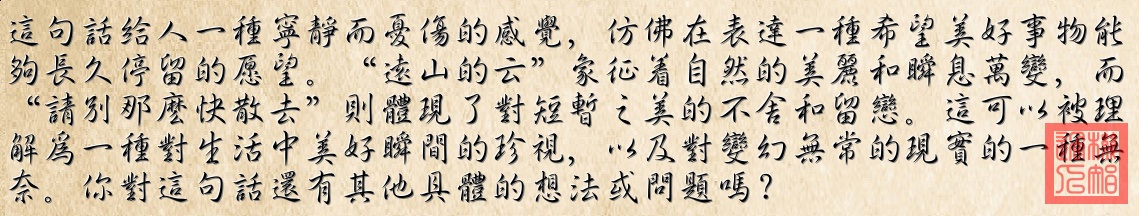 這句話給人一種寧靜而憂傷的感覺，仿佛在表達一種希望美好事物能
夠長久停留的愿望。“遠山的云”象征着自然的美麗和瞬息萬變，而
“請別那麽快散去”則體現了對短暫之美的不舍和留戀。這可以被理
解爲一種對生活中美好瞬間的珍視，以及對變幻無常的現實的一種無
奈。你對這句話還有其他具體的想法或問題嗎？